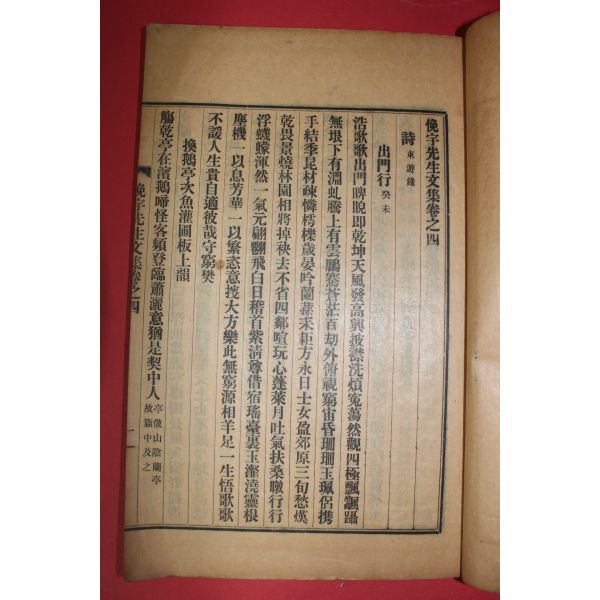 俛宇先生文集卷之四
詩 東遊錄
出門行 癸未
浩歌歌出門睥睨卽乾坤天風發高興披襟洗煩寃蕩然觀四極飄飄躡
無垠下有淵虬騰上有雲鵬騫蒼茫百劫外俯視窮宙昏珊珊玉珮侶携
手結季昆材疎憐樗櫟歲晏吟蘭蓀耒耟方永日士女盈郊原三旬愁熯
乾畏景燒林園相將掉袂去不省四鄰喧玩心蓬萊月吐氣扶桑暾行行
浮蠛蠓渾然一氣元翩翩飛白日稽首紫淸尊借宿瑤臺裏玉瀣澆靈根
塵機一以息芳華一以繁恣意搜大方樂此無窮源相羊足一生悟歌歌
不諼人生貴自適彼哉守窮樊
換鵝亭次魚灌圃板上韻
觴乾亭在濱鵝啼怪客頻登臨蕭灑意猶是契中人 亭倣山陰蘭亭故篇中及之
俛宇先生文集卷之四 一